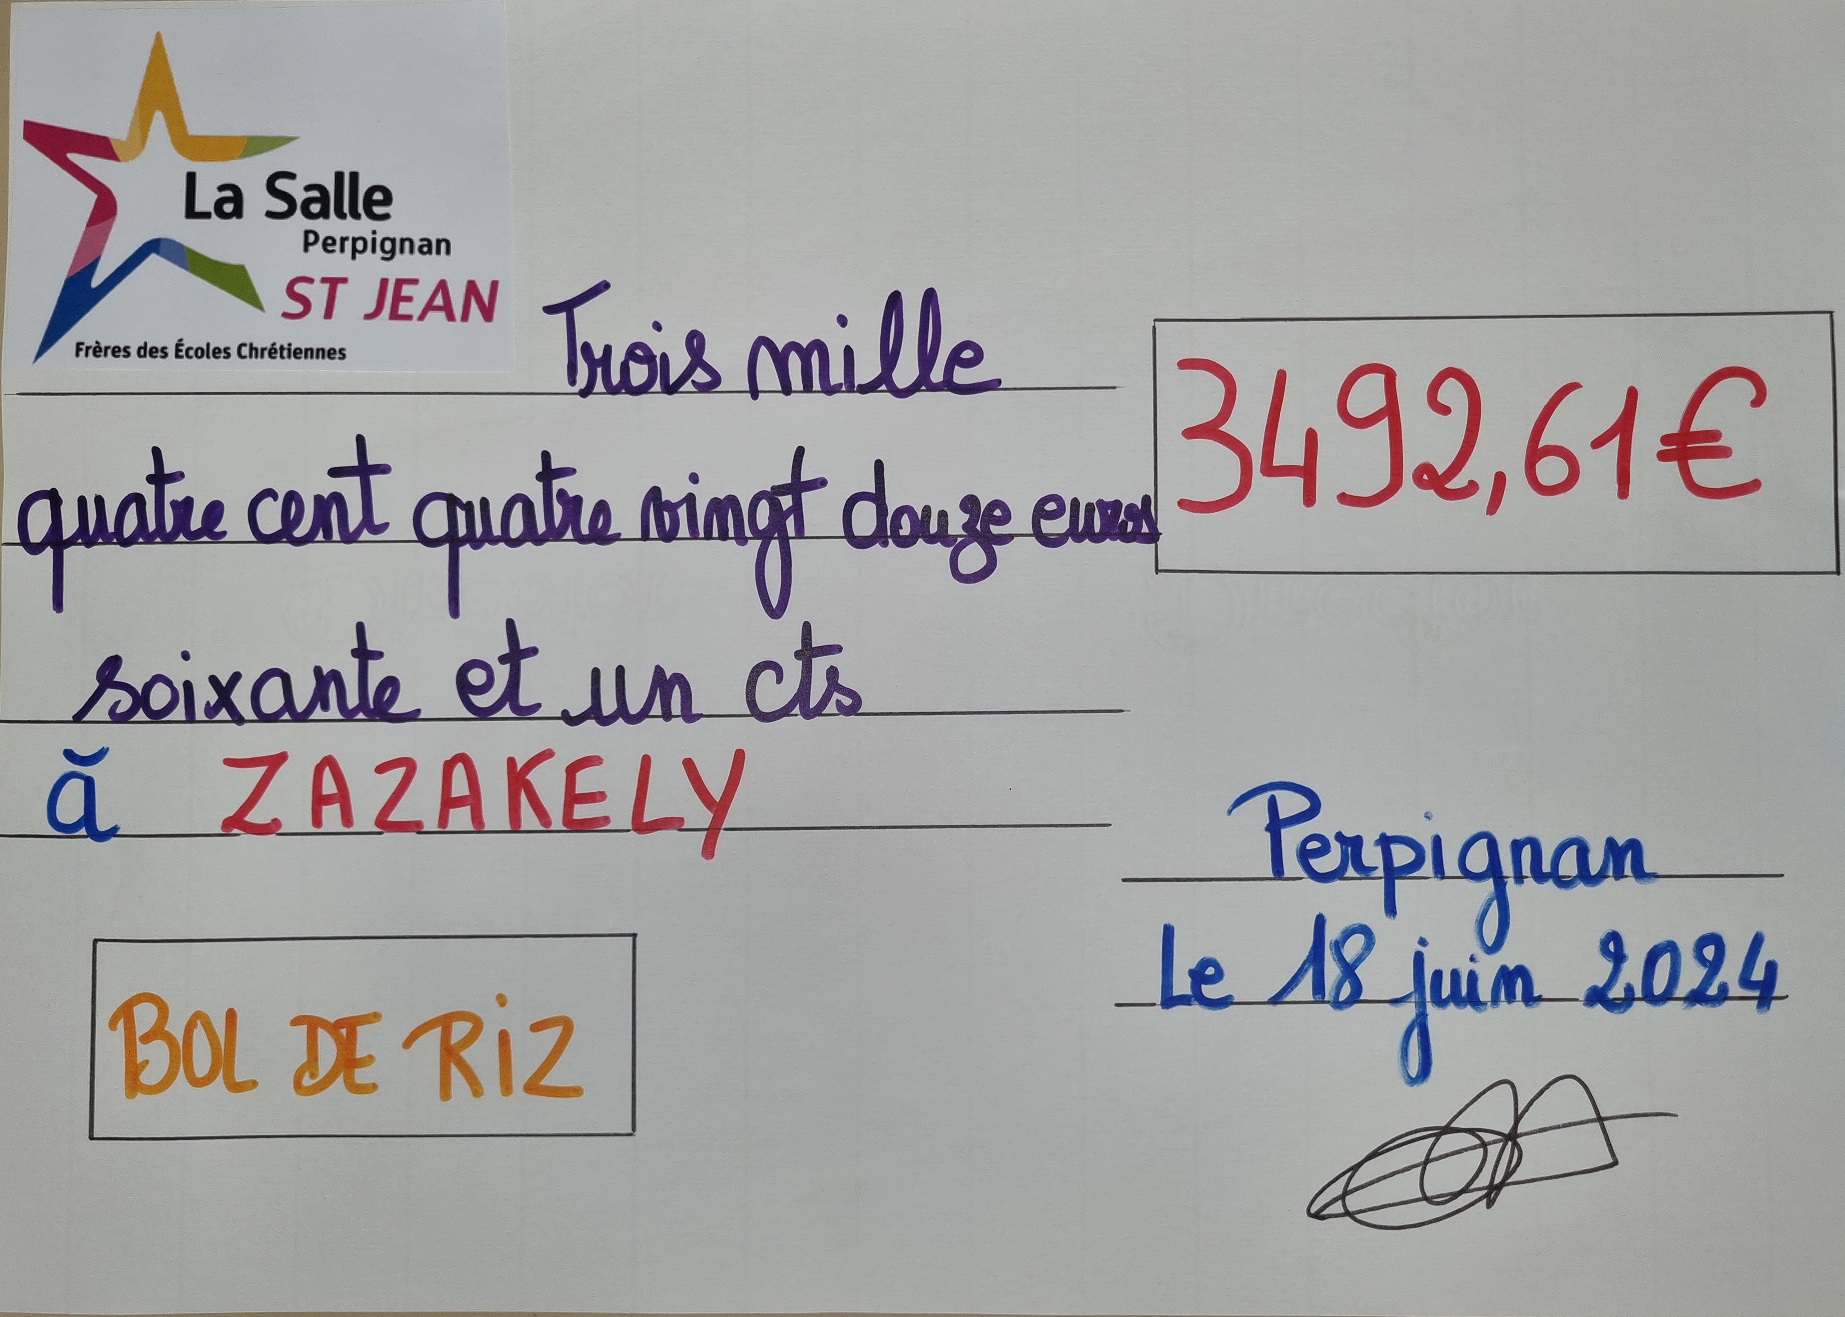 La Salle
Perpignan
ST JEAN
Frères des Écoles Chrétiennes
Trois mille
quatre cent quatre vingt douze euros
soixante et un cts
3492,61€
à ZAZAKELY
Perpignan
Le 18 juin 2024
BOL DE RiZ